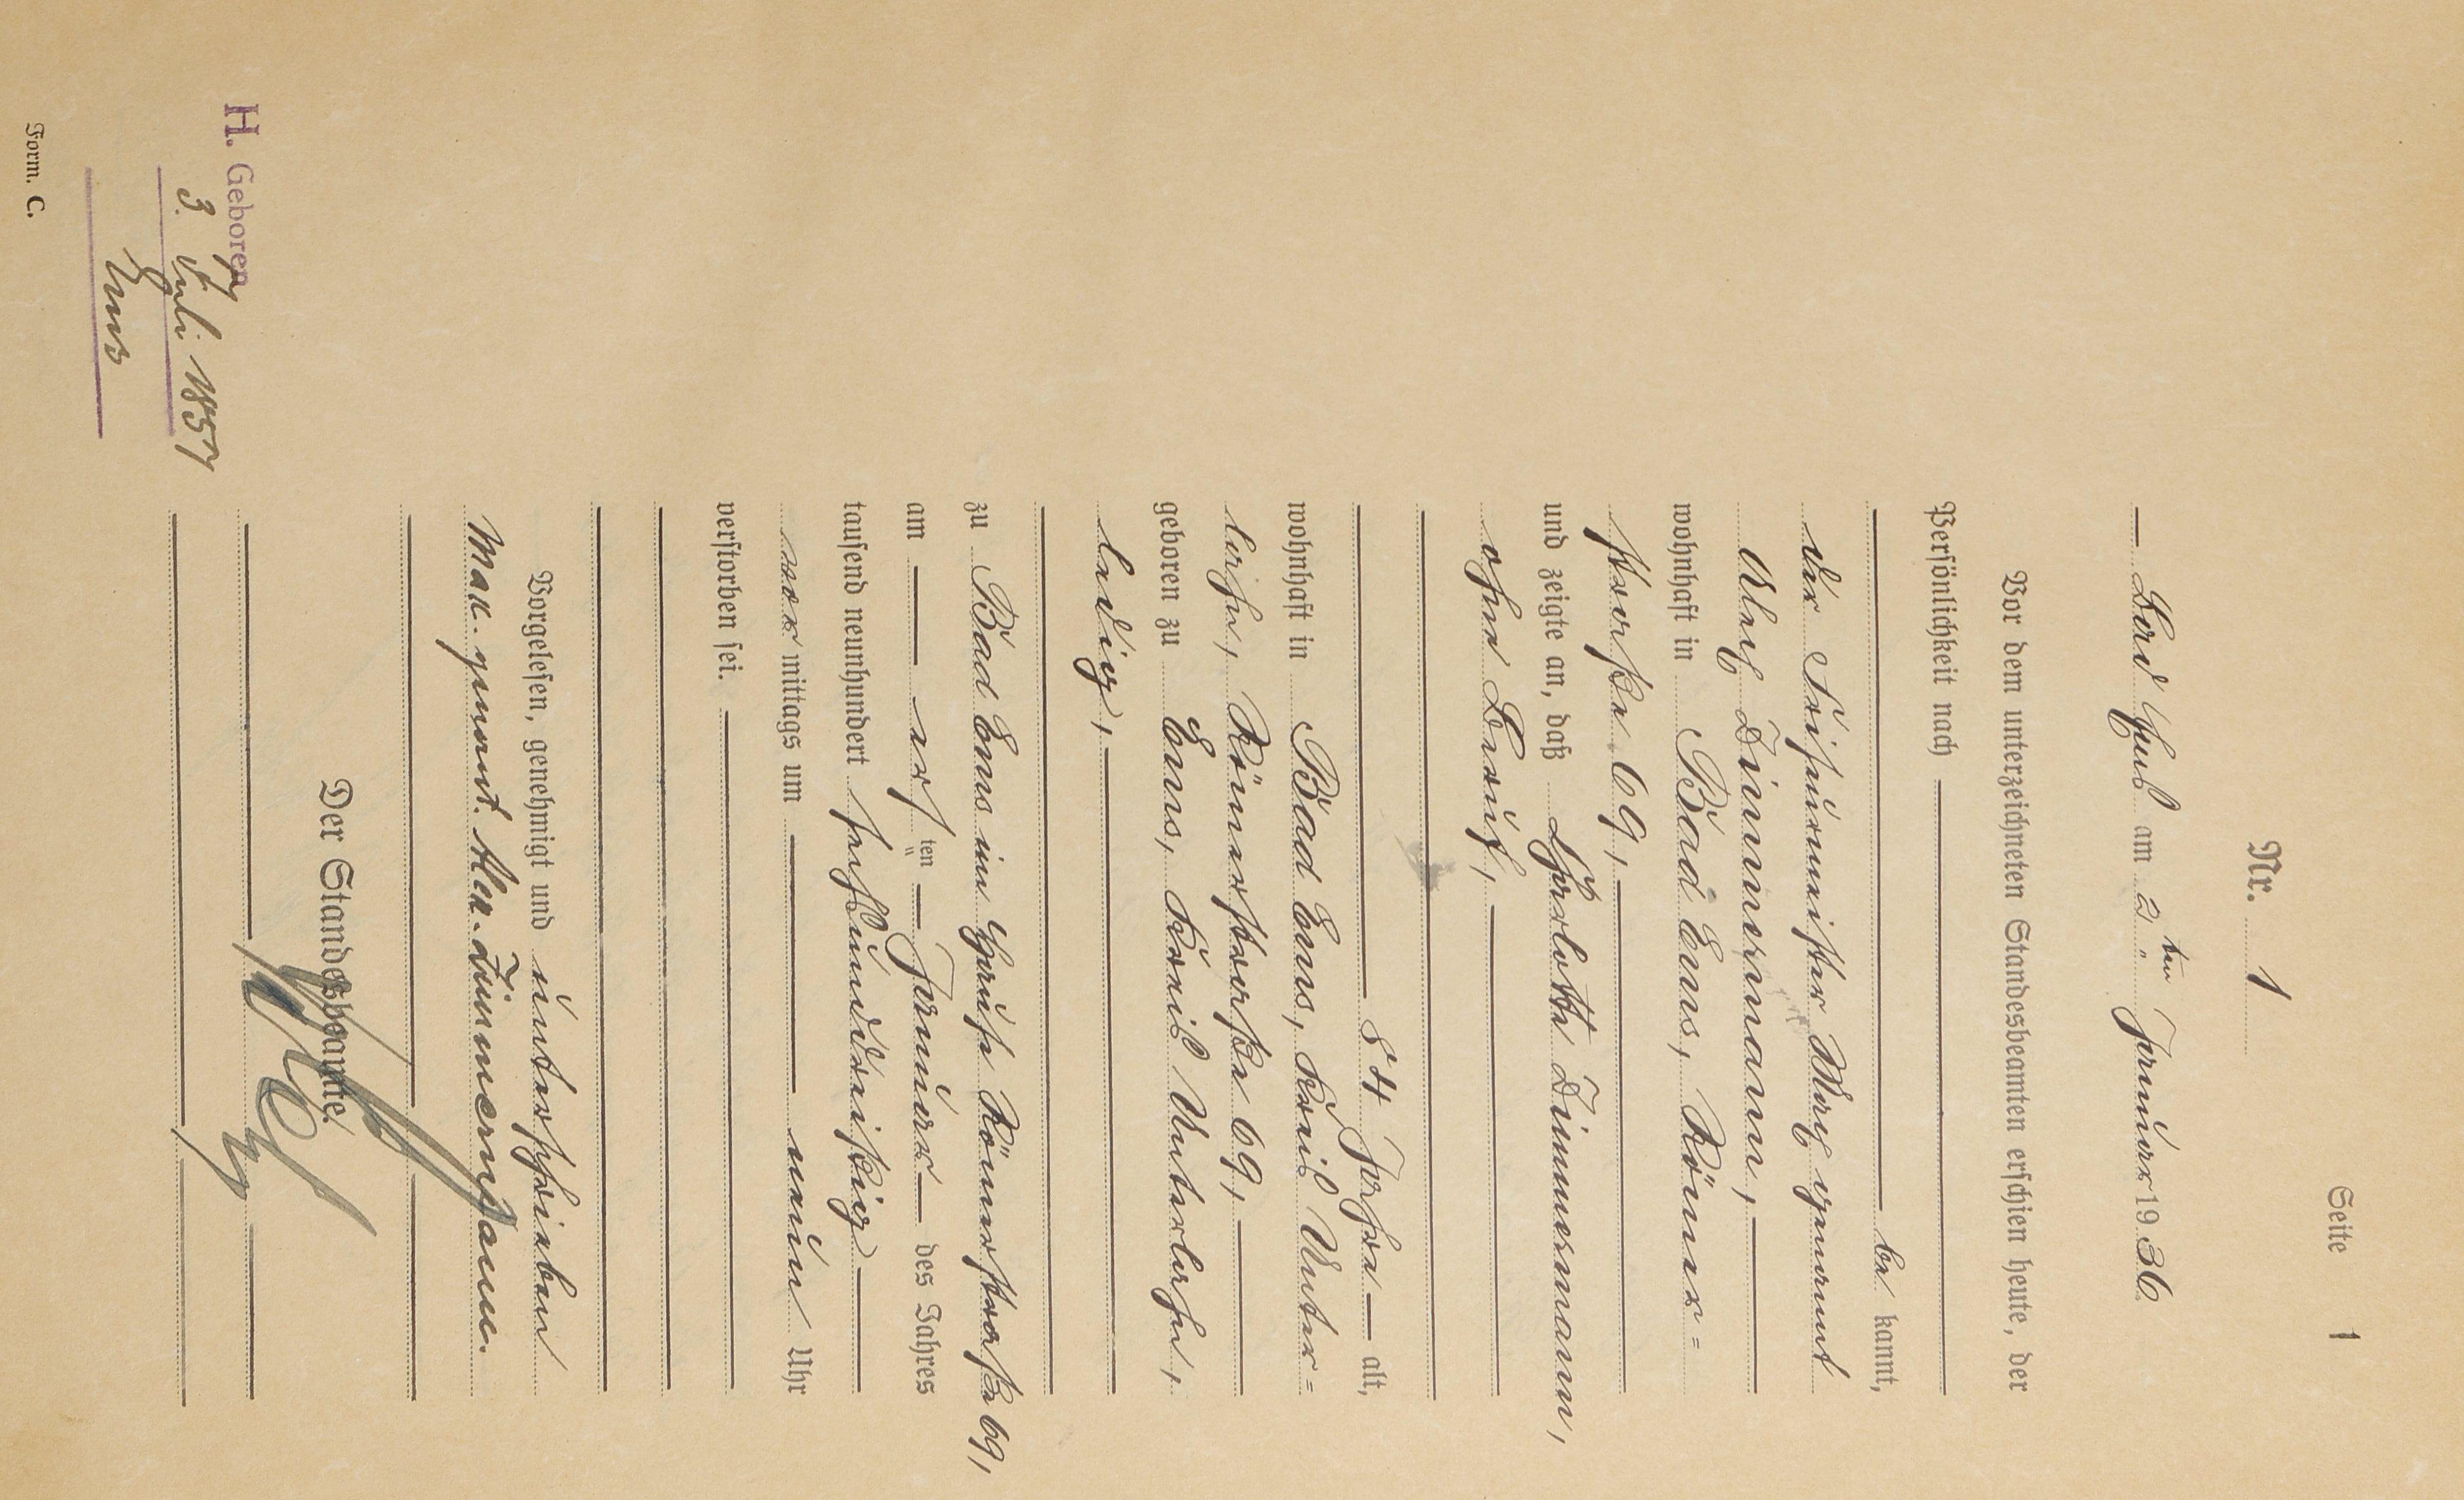 Seite 1
Nr. 1
Bad Ems am 2 ten Januar 1936
Vor dem unterzeichneten Standesbeamten erschien heute, der
Persönlichkeit nach
be kannt,
der Friseurmeister Max genannt
Alex Zimmermann,
wohnhaft in Bad Ems, Römer=
straße 69,
und zeigte an, daß Charlotte Zimmermann,
ohne Beruf,
84 Jahre alt,
wohnhaft in Bad Ems, Kreis Unter=
lahn, Römerstraße 69,
geboren zu Ems, Kreis Unterlahn,
ledig,
zu Bad Ems im Hause Römerstraße 69,
am ersten Januar des Jahres
tausend neunhundert sechsunddreißig
vor mittags um neun Uhr
verstorben sei.
Vorgelesen, genehmigt und unterschrieben
Max. gennt. Alex. Zimmermann.
Der Standesbeamte.
H. Geboren
3. Juli 1857
Ems
Form. C.